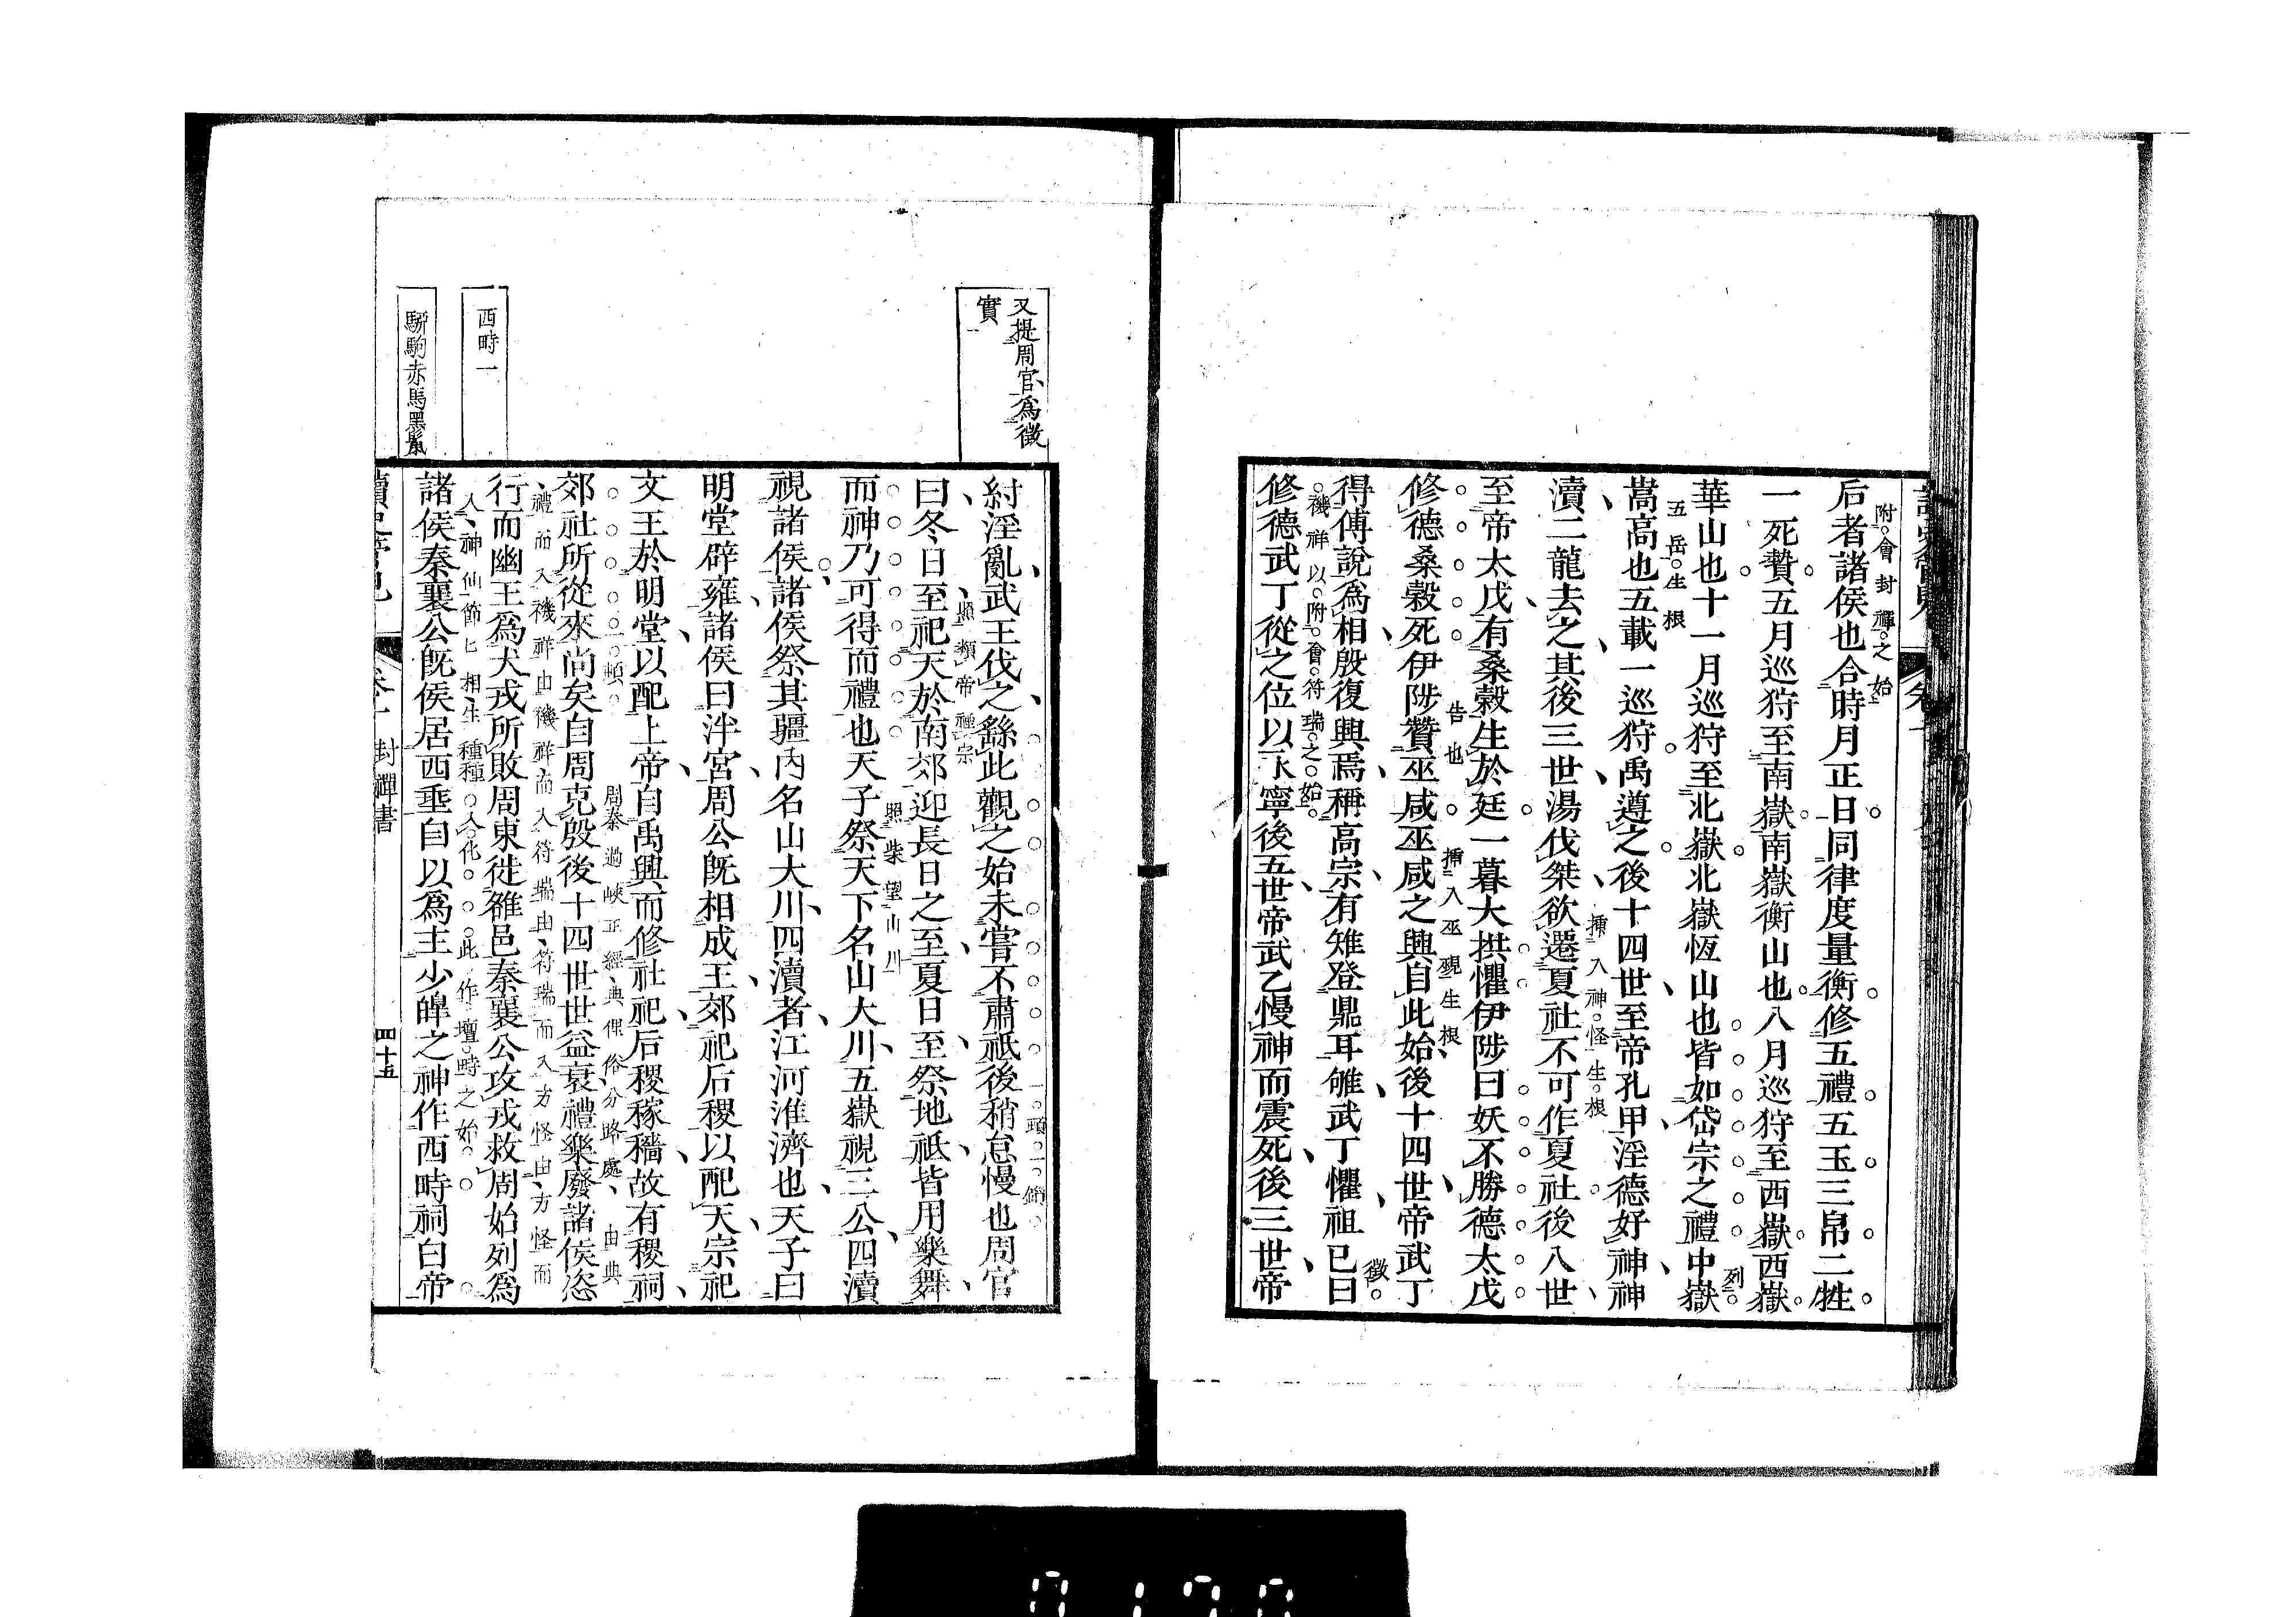 附會封禪之始
后者諸侯也合時月正日同律度量衡修五禮五玉三帛二牲
一死贄五月巡狩至南嶽南嶽衡山也八月巡狩至西嶽西嶽
列
華山也十一月巡狩至北嶽北嶽恆山也皆如岱宗之禮中嶽
五岳生根
嵩高也五載一巡狩禹遵之後十四世至帝孔甲淫德好神神
插入神怪生根
瀆二龍去之其後三世湯伐桀欲遷夏社不可作夏社後八世
至帝太戊有桑榖生於廷一暮大拱懼伊陟曰妖不勝德太戊
告也 插入巫覡生根
修德桑榖死伊陟贊巫咸巫咸之興自此始後十四世帝武丁
徵
得傅說爲相殷復興焉稱高宗有雉登鼎耳雊武丁懼祖已曰
禨祥以附會符瑞之始
修德武丁從之位以永寧後五世帝武乙慢神而震死後三世帝
又提周官爲徵
實
一頭一節
紂淫亂武王伐之繇此觀之始未嘗不肅祗後稍怠慢也周官
照類帝禋宗
曰冬日至祀天於南郊迎長日之至夏日至祭地祗皆用樂舞
照柴望山川
而神乃可得而禮也天子祭天下名山大川五嶽視三公四瀆
視諸侯諸侯祭其疆內名山大川四瀆者江河淮濟也天子曰
明堂辟雍諸侯曰泮宮周公旣相成王郊祀后稷以配天宗祀
文王於明堂以配上帝自禹興而修社祀后稷稼穡故有稷祠
一頓 周秦過峽正經典俚俗分路處由典
郊社所從來尚矣自周克殷後十四世世益衰禮樂廢諸侯恣
禮而入禨祥由禨祥而入符瑞由符瑞而入方怪由方怪而
西畤一
行而幽王爲犬戎所敗周東徙雒邑秦襄公攻戎救周始列爲
入神仙節匕相生種種入化此作壇畤之始
騂駒赤馬黑鬣
諸侯秦襄公旣侯居西垂自以爲主少皥之神作西畤祠白帝
讀史管見 卷一 封禪書 四十五